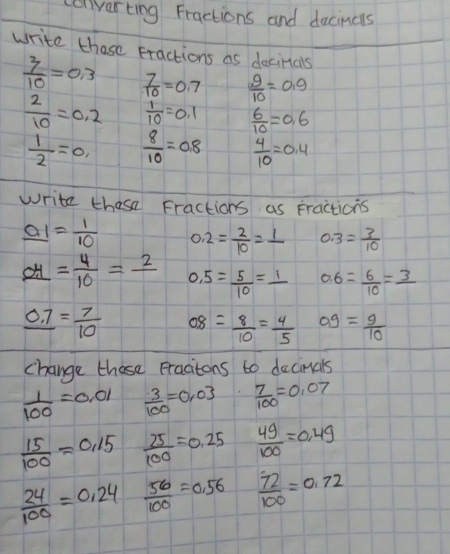 Converting Fractions and decimals
Write these Fractions as decimals
3/10 = 0.3 7/10 = 0.7 9/10 = 0.9
2/10 = 0.2 1/10 = 0.1 6/10 = 0.6
1/2 = 0. 8/10 = 0.8 4/10 = 0.4
Write these Fractions as Fractions
0.1 = 1/10 0.2 = 2/10 = 1 0.3 = 3/10
= 4/10 = 2 0.5 = 5/10 = 1 0.6 = 6/10 = 3
0.7 = 7/10 08 = 8/10 = 4/5 09 = 9/10
Change these Fracitons to decimals
1/100 = 0.01 3/100 = 0.03 7/100 = 0.07
15/100 = 0.15 25/100 = 0.25 49/100 = 0.49
24/100 = 0.24 56/100 = 0.56 72/100 = 0.72